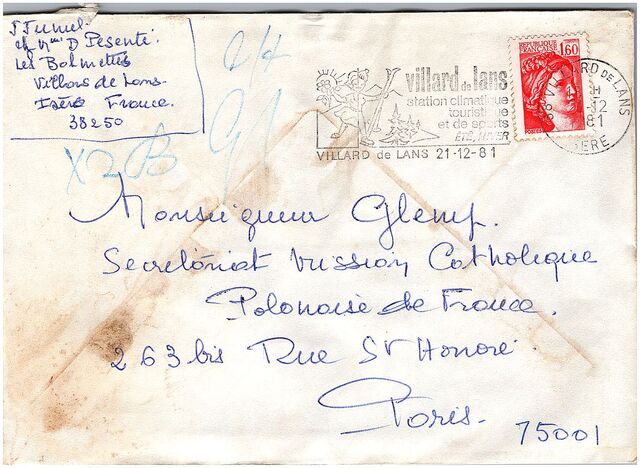 D Pesenti.
Les Balmettes
Villard de Lans.
Isère France.
38250
24
X2B
villard de lans
station climatique
touristique
et de sports
ÉTÉ, HIVER
VILLARD de LANS 21-12-81
RÉPUBLIQUE FRANÇAISE
1,60
VILLARD DE LANS
12
81
ISERE
Monsigneur Glemp.
Secretariat Mission Catholique
Polonaise de France.
263 bis Rue St Honoré.
Paris.
75001